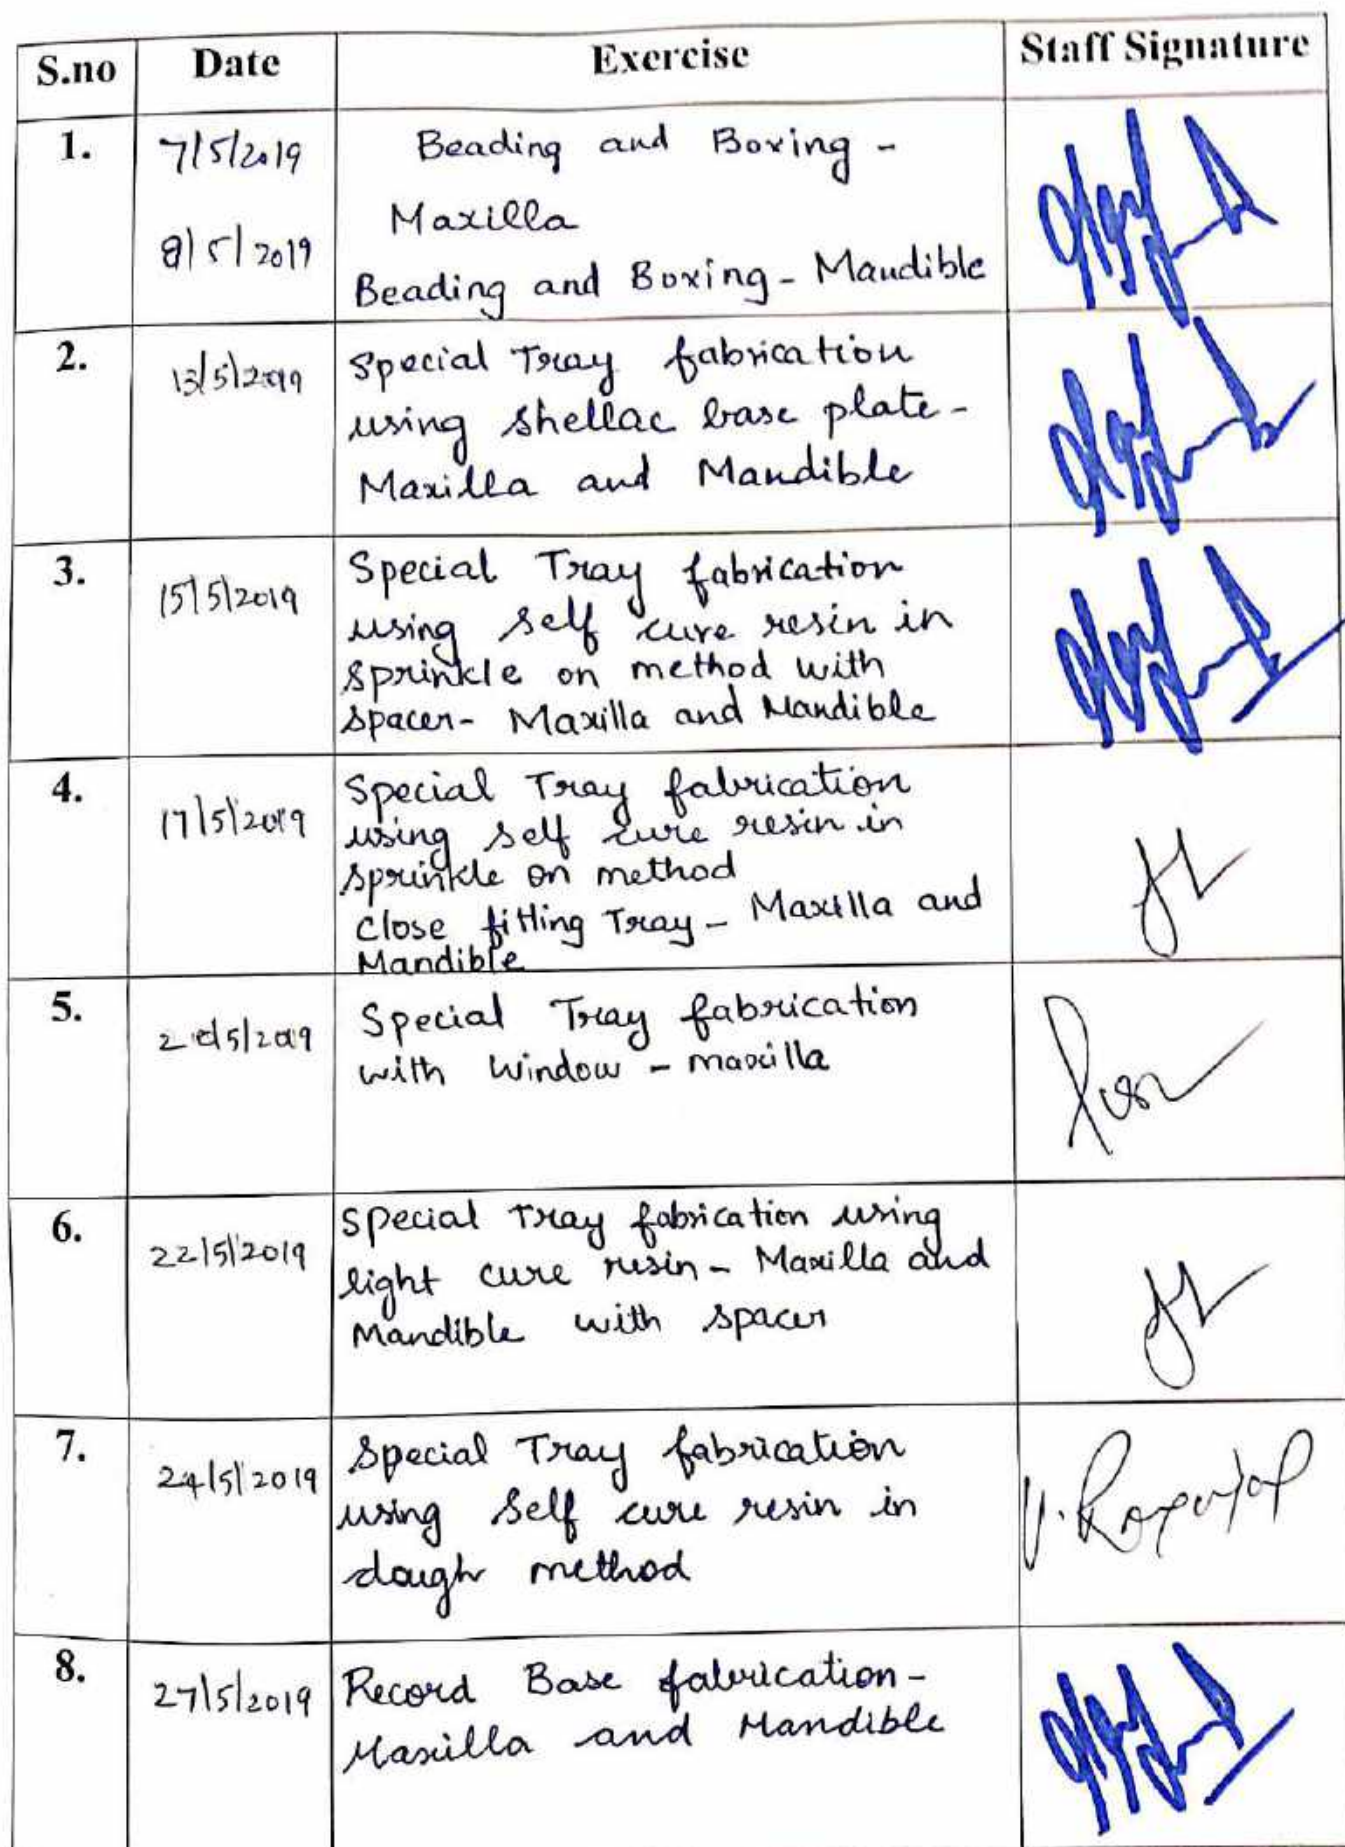 S.no Date Exercise Staff Signature
1. 7/5/2019 Beading and Boxing -
Maxilla
8/5/2019 Beading and Boxing - Mandible
2. 13/5/2019 Special Tray fabrication
using shellac base plate -
Maxilla and Mandible
3. 15/5/2019 Special Tray fabrication
using self cure resin in
sprinkle on method with
spacer - Maxilla and Mandible
4. 17/5/2019 Special Tray fabrication
using self cure resin in
sprinkle on method
close fitting Tray - Maxilla and
Mandible
5. 20/5/2019 Special Tray fabrication
with window - maxilla
6. 22/5/2019 Special Tray fabrication using
light cure resin - Maxilla and
Mandible with spacer
7. 24/5/2019 Special Tray fabrication
using self cure resin in
dough method
8. 27/5/2019 Record Base fabrication -
Maxilla and Mandible